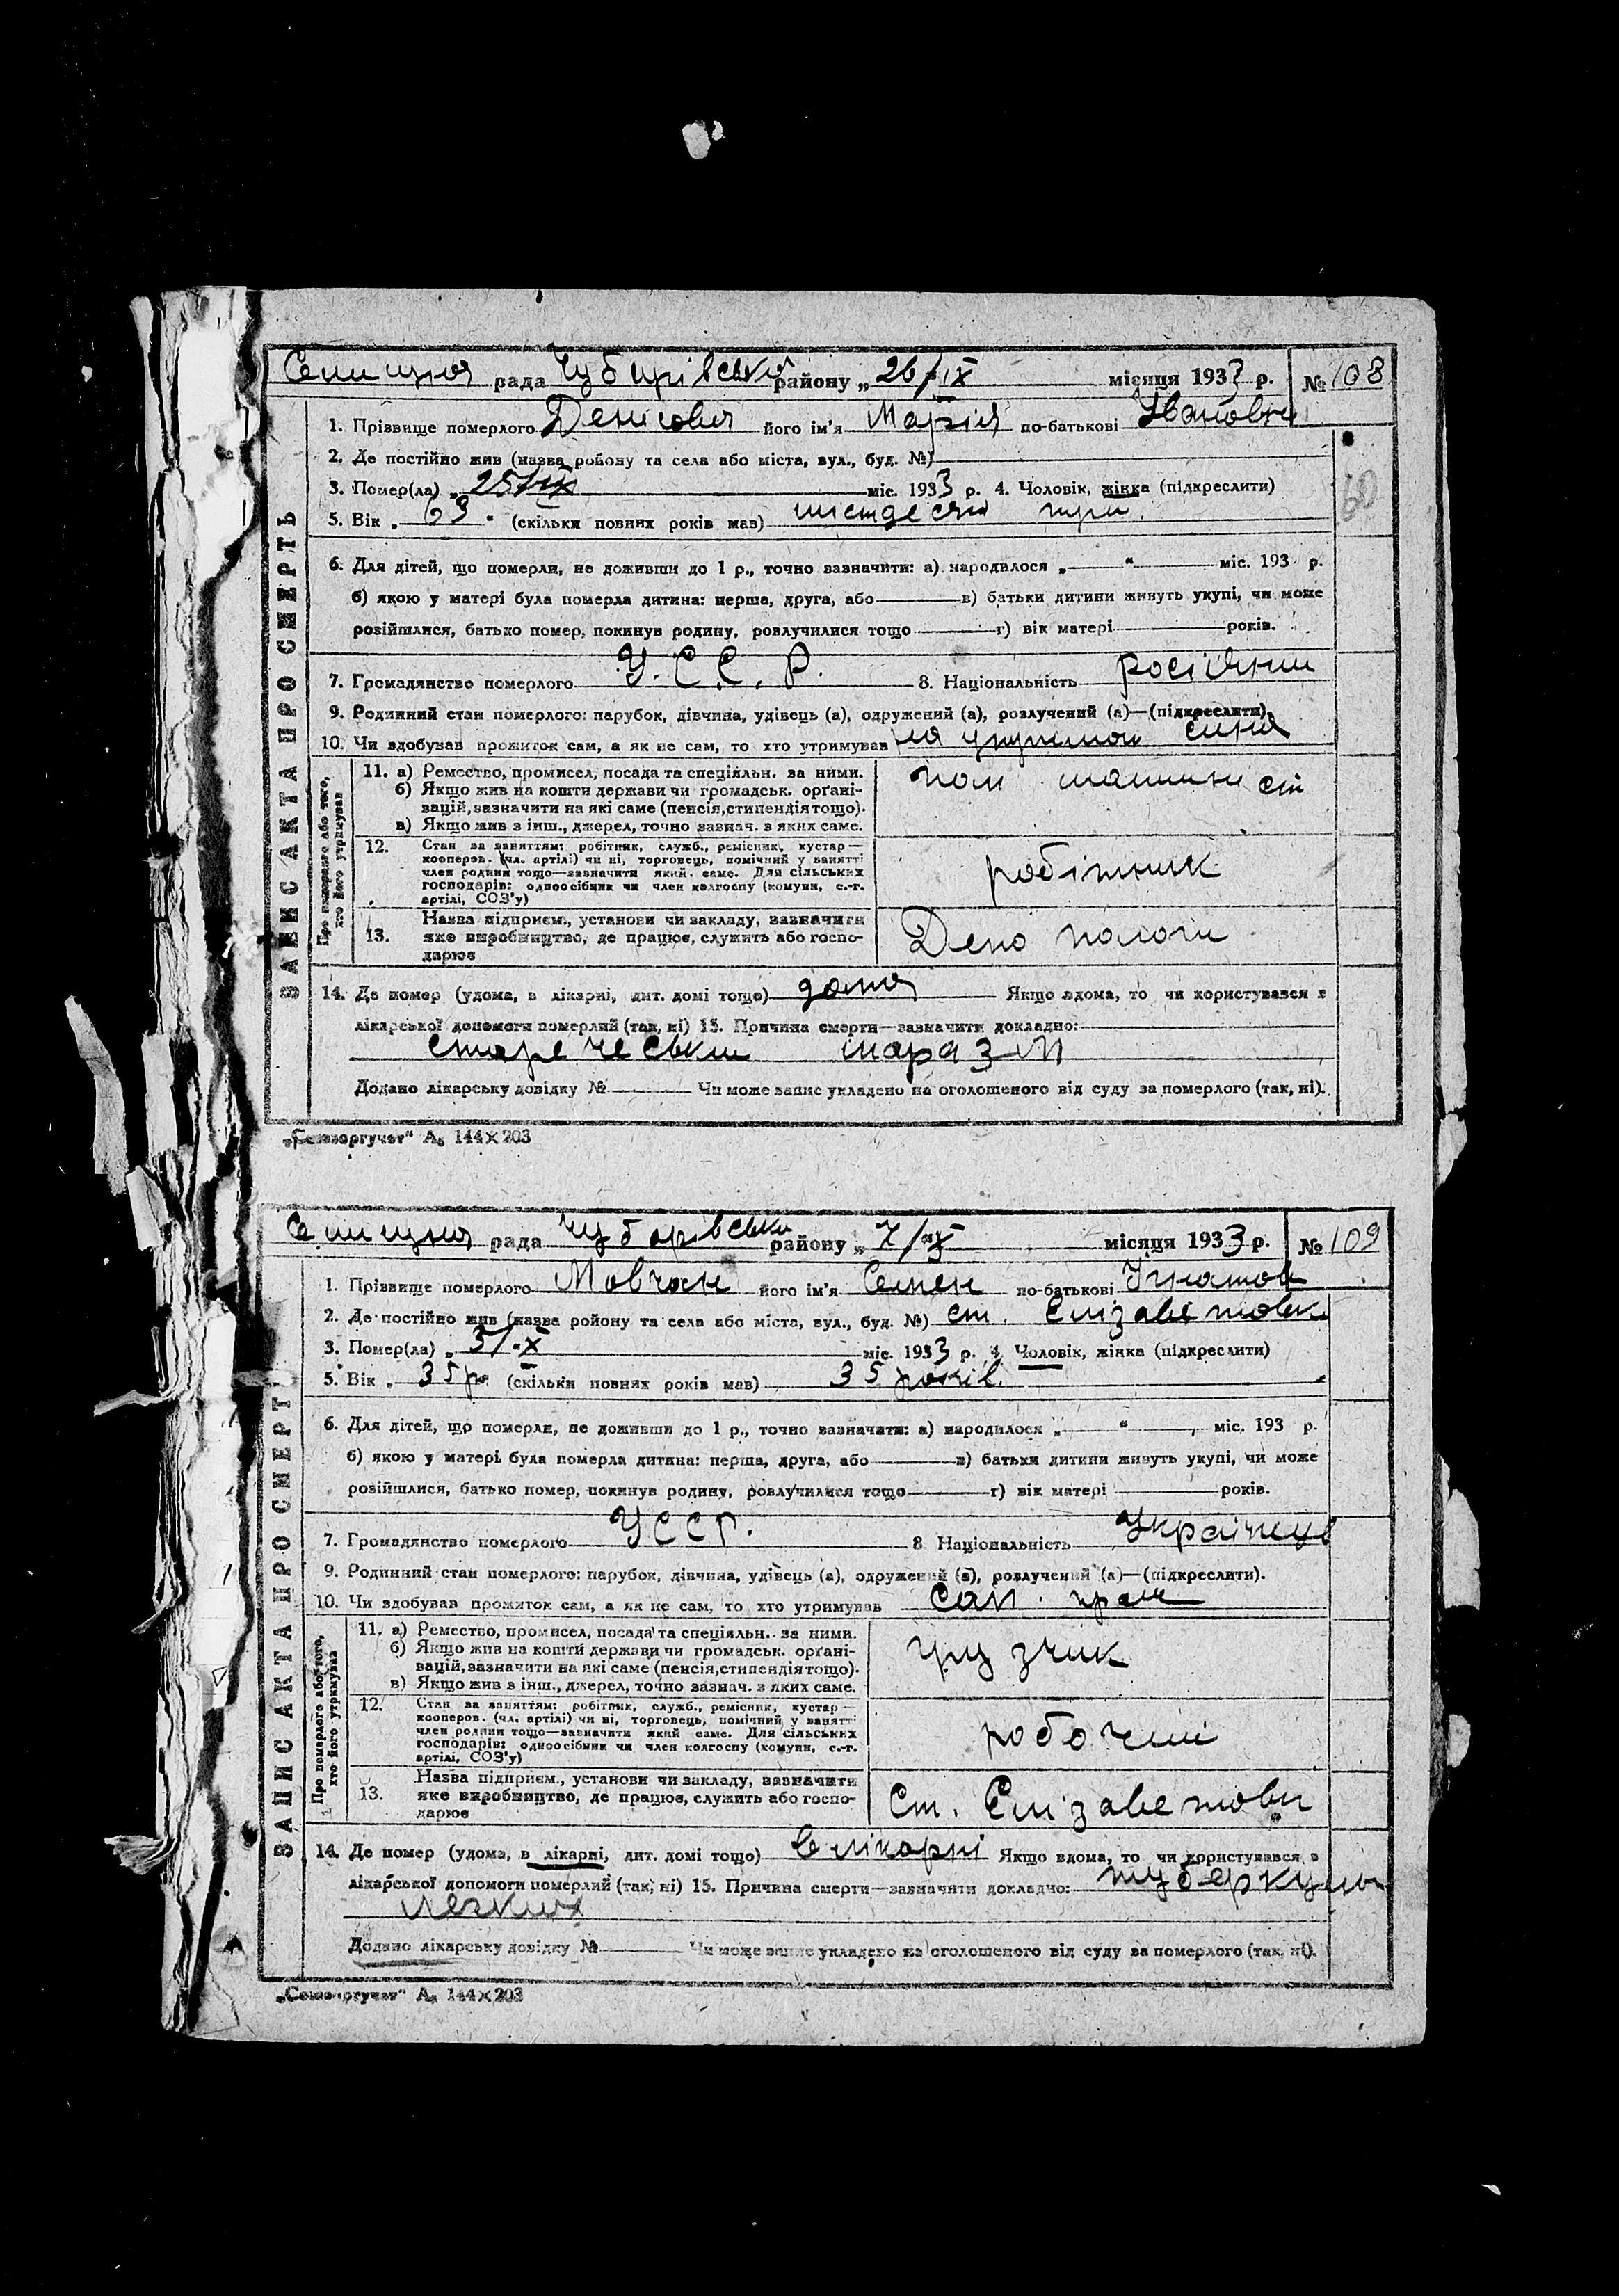 Селищна рада Чубарівська району „ 26/IX місяця 1933 р. № 108
ЗАПИС АКТА ПРО СМЕРТЬ
1. Прізвище померлого Денісовя його ім'я Марія по-батькові Івановна
2. Де постійно жив (назва ройону та села або міста, вул., буд. №)
3. Помер(ла) „ 25/IX міс. 1933 р. 4. Чоловік, жінка (підкреслити)
5. Вік „ 63 " (скільки повних років мав) шістдесят три.
6. Для дітей, що померли, не доживши до 1 р., точно зазначити: а) народилося „ “ міс. 193 р.
б) якою у матері була померла дитина: перша, друга, або в) батьки дитини живуть укупі, чи може
розійшлися, батько помер, покинув родину, розлучилися тощо г) вік матері років.
7. Громадянство померлого У.С.С.Р. 8. Національність
9. Родинний стан померлого: парубок, дівчина, удівець (а), одружений (а), розлучений (а)—(підкреслити).
10. Чи здобував прожиток сам, а як не сам, то хто утримував на утриман сина
Про померлого або того, хто його утримував
11. а) Ремество, промисел, посада та спеціяльн. за ними.
б) Якщо жив на кошти держави чи громадськ. органі-
зацій, зазначити на які саме (пенсія, стипендія тощо).
в) Якщо жив з інш., джерел, точно зазнач. з яких саме.
пом машиніст
12. Стан за заняттям: робітник, служб., ремісник, кустар—
кооперов. (чл. артілі) чи ні, торговець, помічний у занятті
член родини тощо—зазначити який саме. Для сільських
господарів: одноосібник чи член колгоспу (комуни, с.-г.
артілі, СОЗ'у)
робітник
13. Назва підприєм., установи чи закладу, зазначити
яке виробництво, де працює, служить або госпо-
дарює
Депо пологи
14. Де помер (удома, в лікарні, дит. домі тощо) дома Якщо вдома, то чи користувався з
лікарської допомоги померлий (так, ні) 15. Причина смерти—зазначити докладно:
старечеський маразм
Додано лікарську довідку № Чи може запис укладено на оголошеного від суду за померлого (так, ні).
„Союзоргучет“ А₆ 144×203
Селищна рада Чубарівськи району „ 7/X місяця 1933 р. № 109
ЗАПИС АКТА ПРО СМЕРТЬ
1. Прізвище померлого Мовчан його ім'я Семен по-батькові Ігнатов
2. Де постійно жив (назва ройону та села або міста, вул., буд. №) ст. Елізаветовка
3. Помер(ла) „ 5/X міс. 1933 р. 4. Чоловік, жінка (підкреслити)
5. Вік „ 35 р. (скільки повних років мав) 35 років.
6. Для дітей, що померли, не доживши до 1 р., точно зазначити: а) народилося „ “ міс. 193 р.
б) якою у матері була померла дитина: перша, друга, або в) батьки дитини живуть укупі, чи може
розійшлися, батько помер, покинув родину, розлучилися тощо г) вік матері років.
7. Громадянство померлого УССР. 8. Національність Українець
9. Родинний стан померлого: парубок, дівчина, удівець (а), одружений (а), розлучений (а)—(підкреслити).
10. Чи здобував прожиток сам, а як не сам, то хто утримував сам.
Про померлого або того, хто його утримував
11. а) Ремество, промисел, посада та спеціяльн. за ними.
б) Якщо жив на кошти держави чи громадськ. органі-
зацій, зазначити на які саме (пенсія, стипендія тощо).
в) Якщо жив з інш., джерел, точно зазнач. з яких саме.
грузчик
12. Стан за заняттям: робітник, служб., ремісник, кустар—
кооперов. (чл. артілі) чи ні, торговець, помічний у занятті
член родини тощо—зазначити який саме. Для сільських
господарів: одноосібник чи член колгоспу (комуни, с.-г.
артілі, СОЗ'у)
робочий
13. Назва підприєм., установи чи закладу, зазначити
яке виробництво, де працює, служить або госпо-
дарює
Ст. Елізаветовки
14. Де помер (удома, в лікарні, дит. домі тощо) в лікарні Якщо вдома, то чи користувався з
лікарської допомоги померлий (так, ні) 15. Причина смерти—зазначити докладно: туберкульоз
легких
Додано лікарську довідку № Чи може запис укладено на оголошеного від суду за померлого (так, ні).
„Союзоргучет“ А₆ 144×203